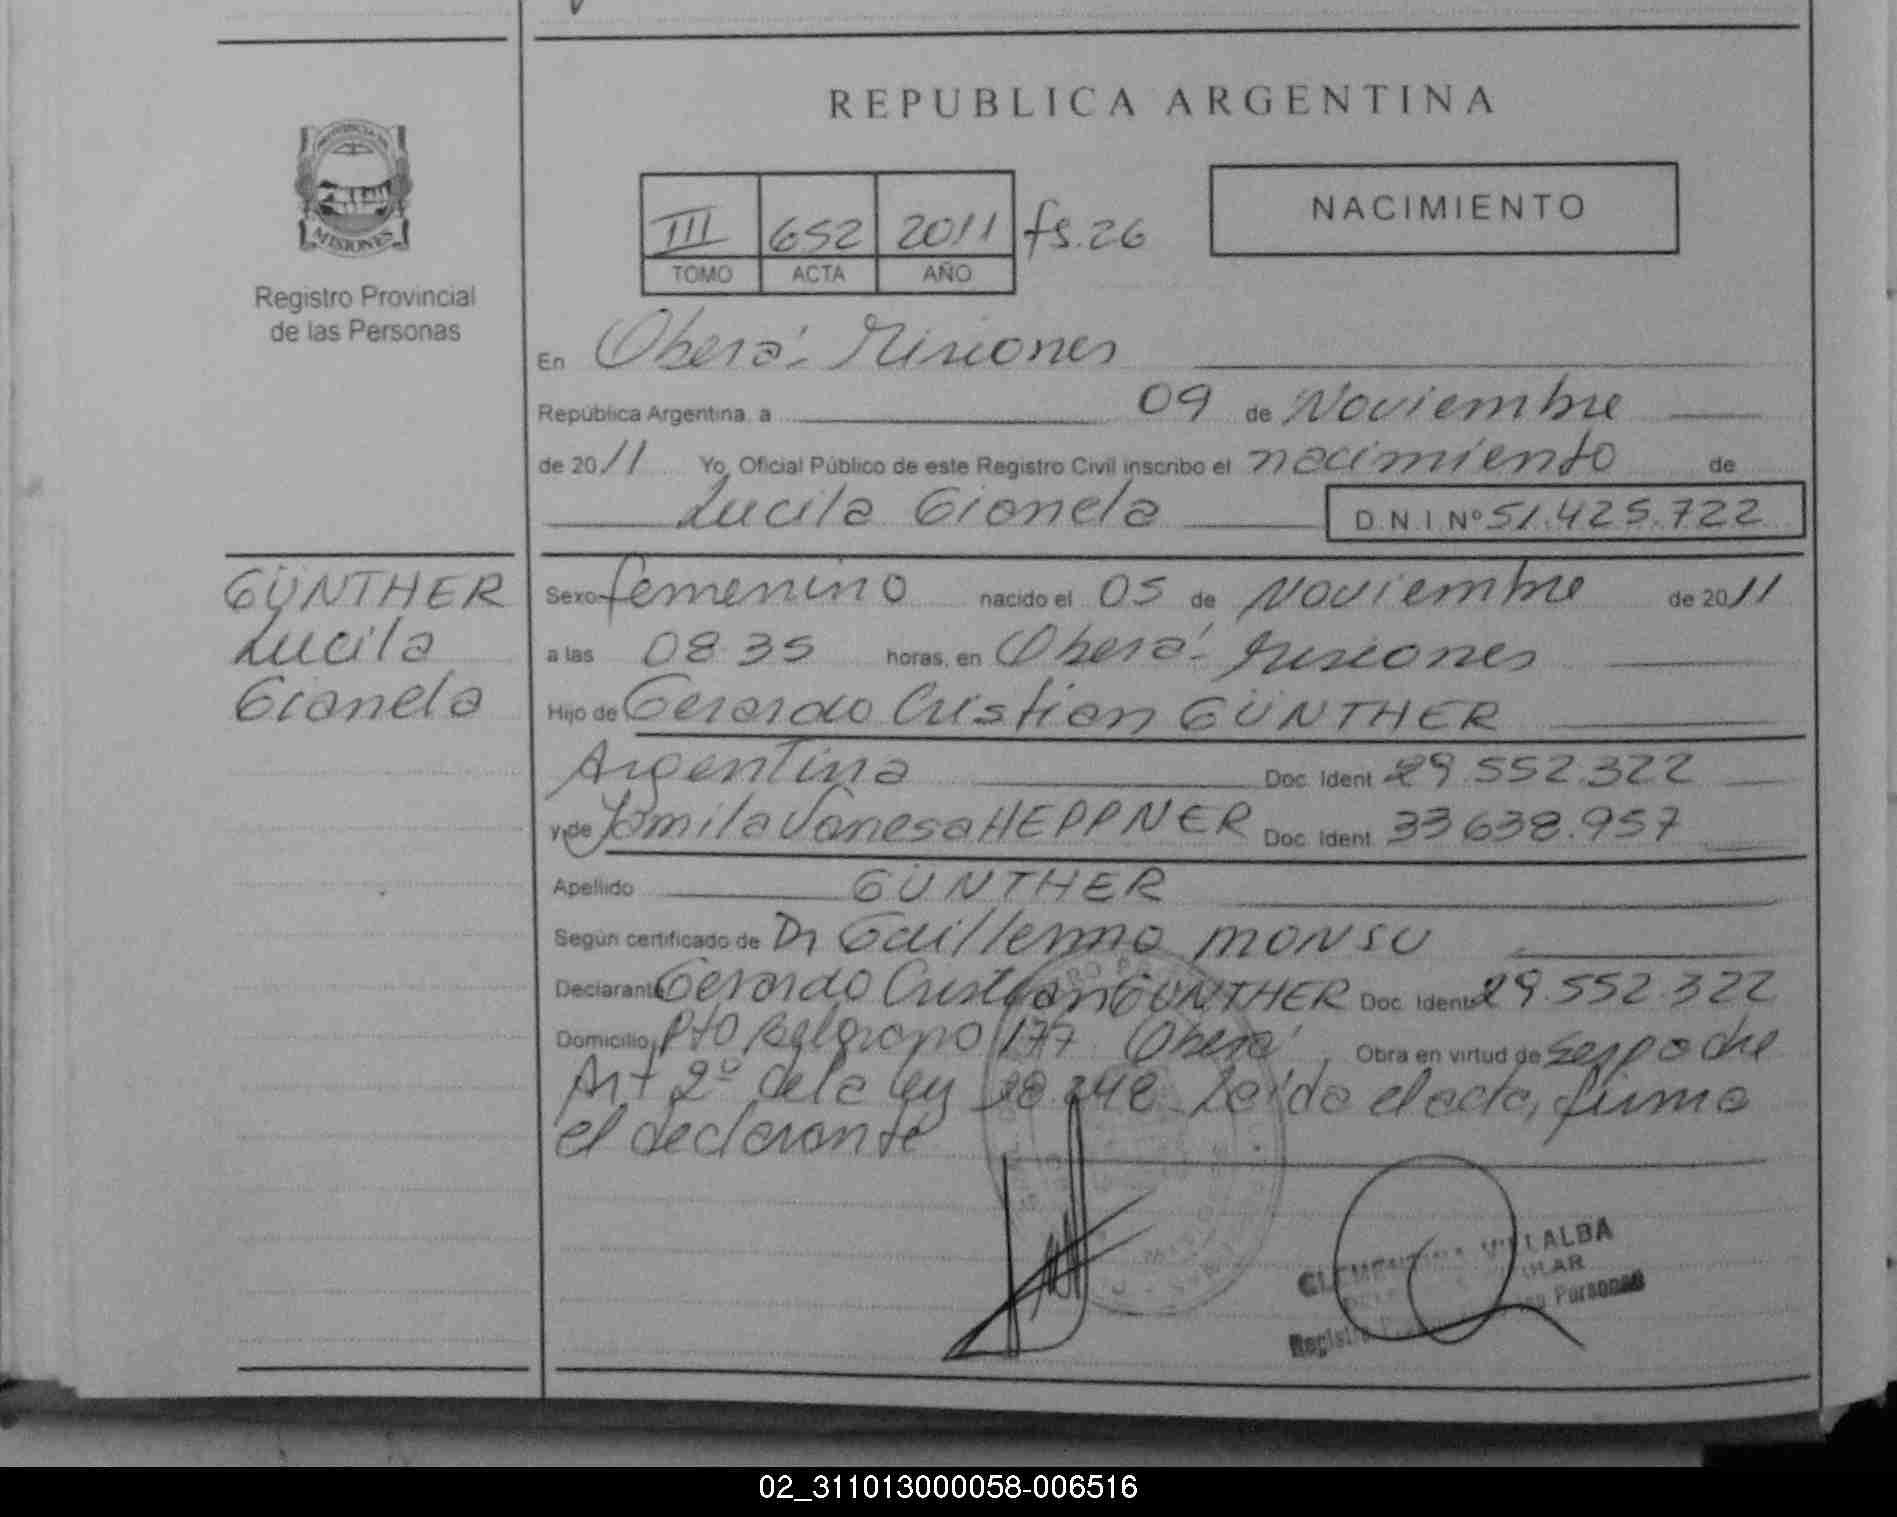 REPUBLICA ARGENTINA
PROVINCIA DE
MISIONES
Registro Provincial
de las Personas
III 652 2011 fs. 26
TOMO ACTA AÑO
NACIMIENTO
En Oberá - Misiones
República Argentina, a 09 de Noviembre
de 2011 Yo, Oficial Público de este Registro Civil inscribo el nacimiento de
Lucila Gianela D.N.I.Nº 51.425.722
GÜNTHER
Lucila
Gianela
Sexo femenino nacido el 05 de Noviembre de 2011
a las 08 35 horas, en Oberá - Misiones
Hijo de Gerardo Cristian GÜNTHER
Argentina Doc. Ident. 29.552.322
y de Yamila Vanesa HEPPNER Doc. Ident. 33 638.957
Apellido GÜNTHER
Según certificado de Dr Guillermo MONSU
Declarante Gerardo Cristian GÜNTHER Doc. Ident. 29.552.322
Domicilio Pto Belgrano 177 Oberá, Obra en virtud de ser padre
Art 2º de la ley 18.248. Leída el acta, firma
el declarante
CLEMENTINA VILLALBA
Registro Personas
02_311013000058-006516